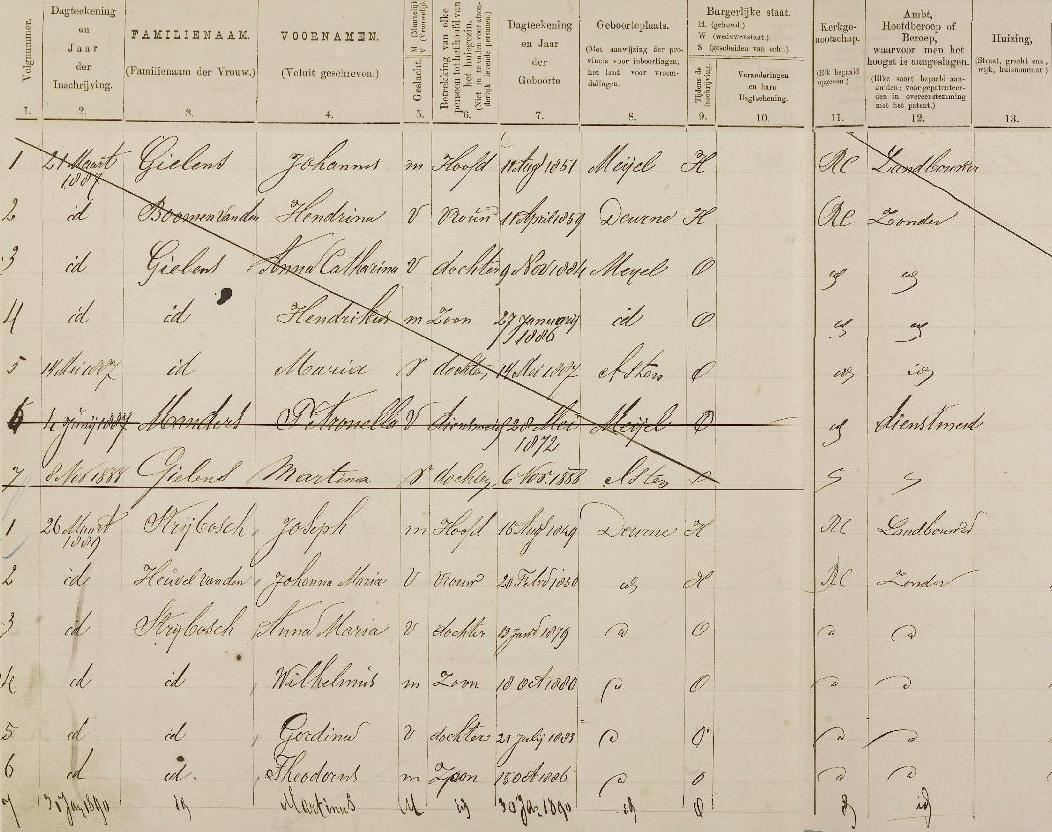 Volgnummer.
Dagteekening en Jaar der Inschrijving.
FAMILIENAAM. (Familienaam der Vrouw.)
VOORNAMEN. (Voluit geschreven.)
Geslacht. M (Mannelijk) V (Vrouwelijk)
Betrekking van elke persoon tot het hoofd van het huisgezin.
Dagteekening en Jaar der Geboorte
Geboorteplaats. (Met aanwijzing der provincie voor inboorlingen, het land voor vreemdelingen.
Burgerlijke staat. H. (gehuwd.) W (weduwenstaat.) S (gescheiden van echt.)
Tijdens de inschrijving.
Veranderingen en hare Dagteekening.
Kerkgenootschap. (Elk bepaald opgeven.)
Ambt, Hoofdberoep of Beroep, waarvoor men het hoogst is aangeslagen.
Huizing,
1. 2. 3. 4. 5. 6. 7. 8. 9. 10. 11. 12. 13.
1 21 Maart 1887 Gielens Johannes m Hoofd Aug 1851 Meijel H RC Landbouwer
2 id Boomen van den Hendrina V Vrouw April 1859 Deurne H RC Zonder
3 id Gielens Anna Catharina V dochter 9 Nov 1884 Meijel O id id
4 id id Hendrikus m Zoon 27 January 1886 id O id id
5 14 Mei 1887 id Maria V dochter 14 Mei 1887 Asten O id id
6 Junij 1887 Manders Petronella V dienstmeid 28 Mei 1872 Meijel O id dienstmeid
7 8 Nov 1888 Gielens Martina V dochter 6 Nov 1888 Asten O
1 26 Maart 1889 Strijbosch Joseph m Hoofd Aug 1849 Deurne H RC Landbouwer
2 id Heuvel van den Johanna Maria V Vrouw 20 Feb 1850 id H RC Zonder
3 id Strijbosch Anna Maria V dochter 13 Jan 1879 id O id id
4 id id Wilhelmus m Zoon 18 Oct 1880 id O id id
5 id id Gordina V dochter 21 July 1883 id O id id
6 id id. Theodorus m Zoon 15 Oct 1886 id O id id
7 30 Jan 1890 id Martinus M id 30 Jan 1890 id O id id